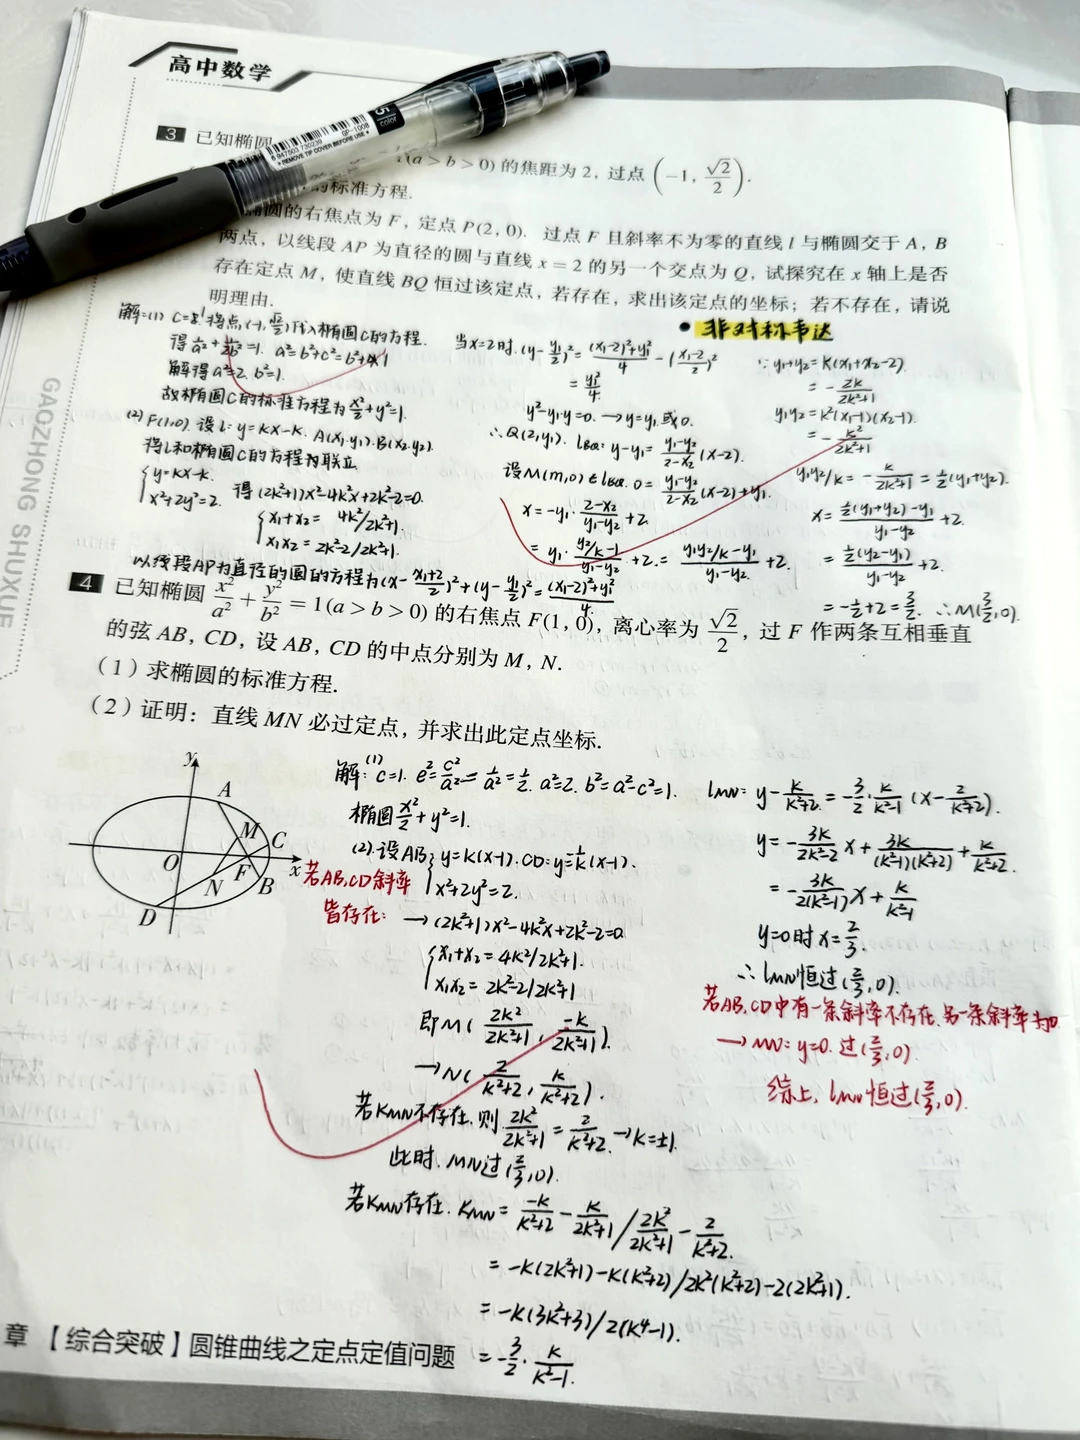 高中数学
5
color
GP-1008
6 947503 730239
REMOVE TIP COVER BEFORE USE
3 已知椭圆
(a>b>0)的焦距为2,过点(-1, √2/2).
的标准方程.
圆的右焦点为F,定点P(2,0).过点F且斜率不为零的直线l与椭圆交于A,B
两点,以线段AP为直径的圆与直线x=2的另一个交点为Q,试探究在x轴上是否
存在定点M,使直线BQ恒过该定点,若存在,求出该定点的坐标;若不存在,请说
明理由.
解:(1) C=1. 将点(-1, √2/2)代入椭圆C的方程.
得1/a²+1/2b²=1. a²=b²+c²=b²+1
解得a²=2. b²=1.
故椭圆C的标准方程为x²/2+y²=1.
(2) F(1,0). 设l: y=kx-k. A(x₁,y₁).B(x₂,y₂).
将l和椭圆C的方程联立
{y=kx-k.
x²+2y²=2. 得(2k²+1)x²-4k²x+2k²-2=0.
{x₁+x₂= 4k²/2k²+1.
x₁x₂= 2k²-2/2k²+1.
以线段AP为直径的圆的方程为(x-(x₁+2)/2)²+(y-y₁/2)²=((x₁-2)²+y₁²)/4.
当x=2时.(y-y₁/2)²=((x₁-2)²+y₁²)/4-((x₁-2)/2)²
=y₁²/4.
y²-y₁y=0. →y=y₁或0.
∴Q(2,y₁). lBQ: y-y₁=(y₁-y₂)/(2-x₂)(x-2).
设M(m,0)∈lBQ. 0=(y₁-y₂)/(2-x₂)(x-2)+y₁.
x=-y₁·(2-x₂)/(y₁-y₂)+2
=y₁·(y₂/k-1)/(y₁-y₂)+2.=(y₁y₂/k-y₁)/(y₁-y₂)+2.
• 非对称韦达
∵y₁+y₂=k(x₁+x₂-2)
=-2k/(2k²+1)
y₁y₂=k²(x₁-1)(x₂-1).
=-k²/(2k²+1)
y₁y₂/k=-k/(2k²+1)=½(y₁+y₂).
x=(½(y₁+y₂)-y₁)/(y₁-y₂)+2.
=½(y₂-y₁)/(y₁-y₂)+2.
=-½+2=3/2. ∴M(3/2,0).
GAOZHONG SHUXUE
4 已知椭圆x²/a²+y²/b²=1(a>b>0)的右焦点F(1,0),离心率为√2/2,过F作两条互相垂直
的弦AB,CD,设AB,CD的中点分别为M,N.
(1)求椭圆的标准方程.
(2)证明:直线MN必过定点,并求出此定点坐标.
y
A
M
C
O
F
x
N
B
D
解:(1) c=1. e²=c²/a²=1/a²=1/2. a²=2. b²=a²-c²=1.
椭圆x²/2+y²=1.
(2).设AB{y=k(x-1). CD:y=1/k(x-1).
x²+2y²=2.
若AB,CD斜率
皆存在:
→(2k²+1)x²-4k²x+2k²-2=0
{x₁+x₂=4k²/2k²+1.
x₁x₂=2k²-2/2k²+1
即M(2k²/(2k²+1), -k/(2k²+1)).
→N(2/(k²+2), k/(k²+2)).
若kMN不存在.则2k²/(2k²+1)=2/(k²+2).→k=±1.
此时.MN过(2/3,0).
若kMN存在. kMN=-k/(k²+2)-k/(2k²+1)/2k²/(2k²+1)-2/(k²+2).
=-k(2k²+1)-k(k²+2)/2k²(k²+2)-2(2k²+1).
=-k(3k²+3)/2(k⁴-1).
=-3/2·k/(k²-1).
lMN: y-k/(k²+2)=-3/2·k/(k²-1)(x-2/(k²+2)).
y=-3k/(2k²-2)x+3k/((k²-1)(k²+2))+k/(k²+2).
=-3k/2(k²-1)x+k/(k²-1)
y=0时x=2/3.
∴lMN恒过(2/3,0).
若AB,CD中有一条斜率不存在.另一条斜率为0
→MN:y=0.过(2/3,0).
综上, lMN恒过(2/3,0).
章 【综合突破】圆锥曲线之定点定值问题